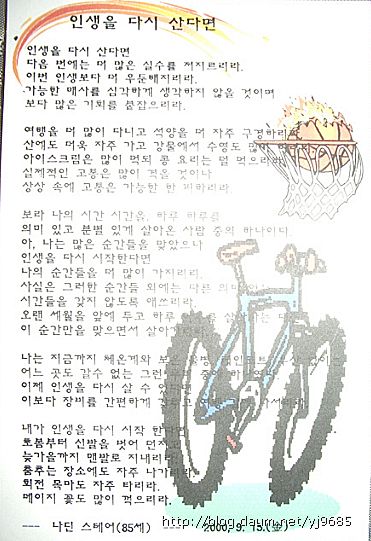 인생을 다시 산다면
인생을 다시 산다면
다음 번에는 더 많은 실수를 저지르리라.
이번 인생보다 더 우둔해지리라.
가능한 매사를 심각하게 생각하지 않을 것이며
보다 많은 기회를 붙잡으리라.
여행을 더 많이 다니고 석양을 더 자주 구경하리라.
산에도 더욱 자주 가고 강물에서 수영도 많이
아이스크림은 많이 먹되 콩 요리는 덜 먹으리라.
실제적인 고통은 많이 겪을 것이나
상상 속에 고통은 가능한 한 피하리라
보라 나의 시간 시간을, 하루 하루를
의미 있고 분별 있게 살아온 사람 중의 하나이다.
아, 나는 많은 순간들을 맞았으나
인생을 다시 시작한다면
나의 순간들을 더 많이 가지리라.
사실은 그러한 순간들 외에는 다른 의미
시간들을 갖지 않도록 애쓰리라.
오랜 세월을 앞에 두고 하루
이 순간만을 맞으면서 살아가리라
나는 지금까지 체온계와
어느 곳도 갈수 없는 그런
이제 인생을 다시 살 수 있다면
이보다 장비를 간편하게
내가 인생을 다시 시작 한다면
초봄부터 신발을 벗어 던지고
늦가을까지 맨발로 지내리라.
춤추는 장소에도 자주 나가리라.
회전 목마도 자주 타리라.
데이지 꽃도 많이 꺾으리라.
--- 나딘 스테어(85세) --- 2000. 9. 15.(금)
http://blog.daum.net/yj9685